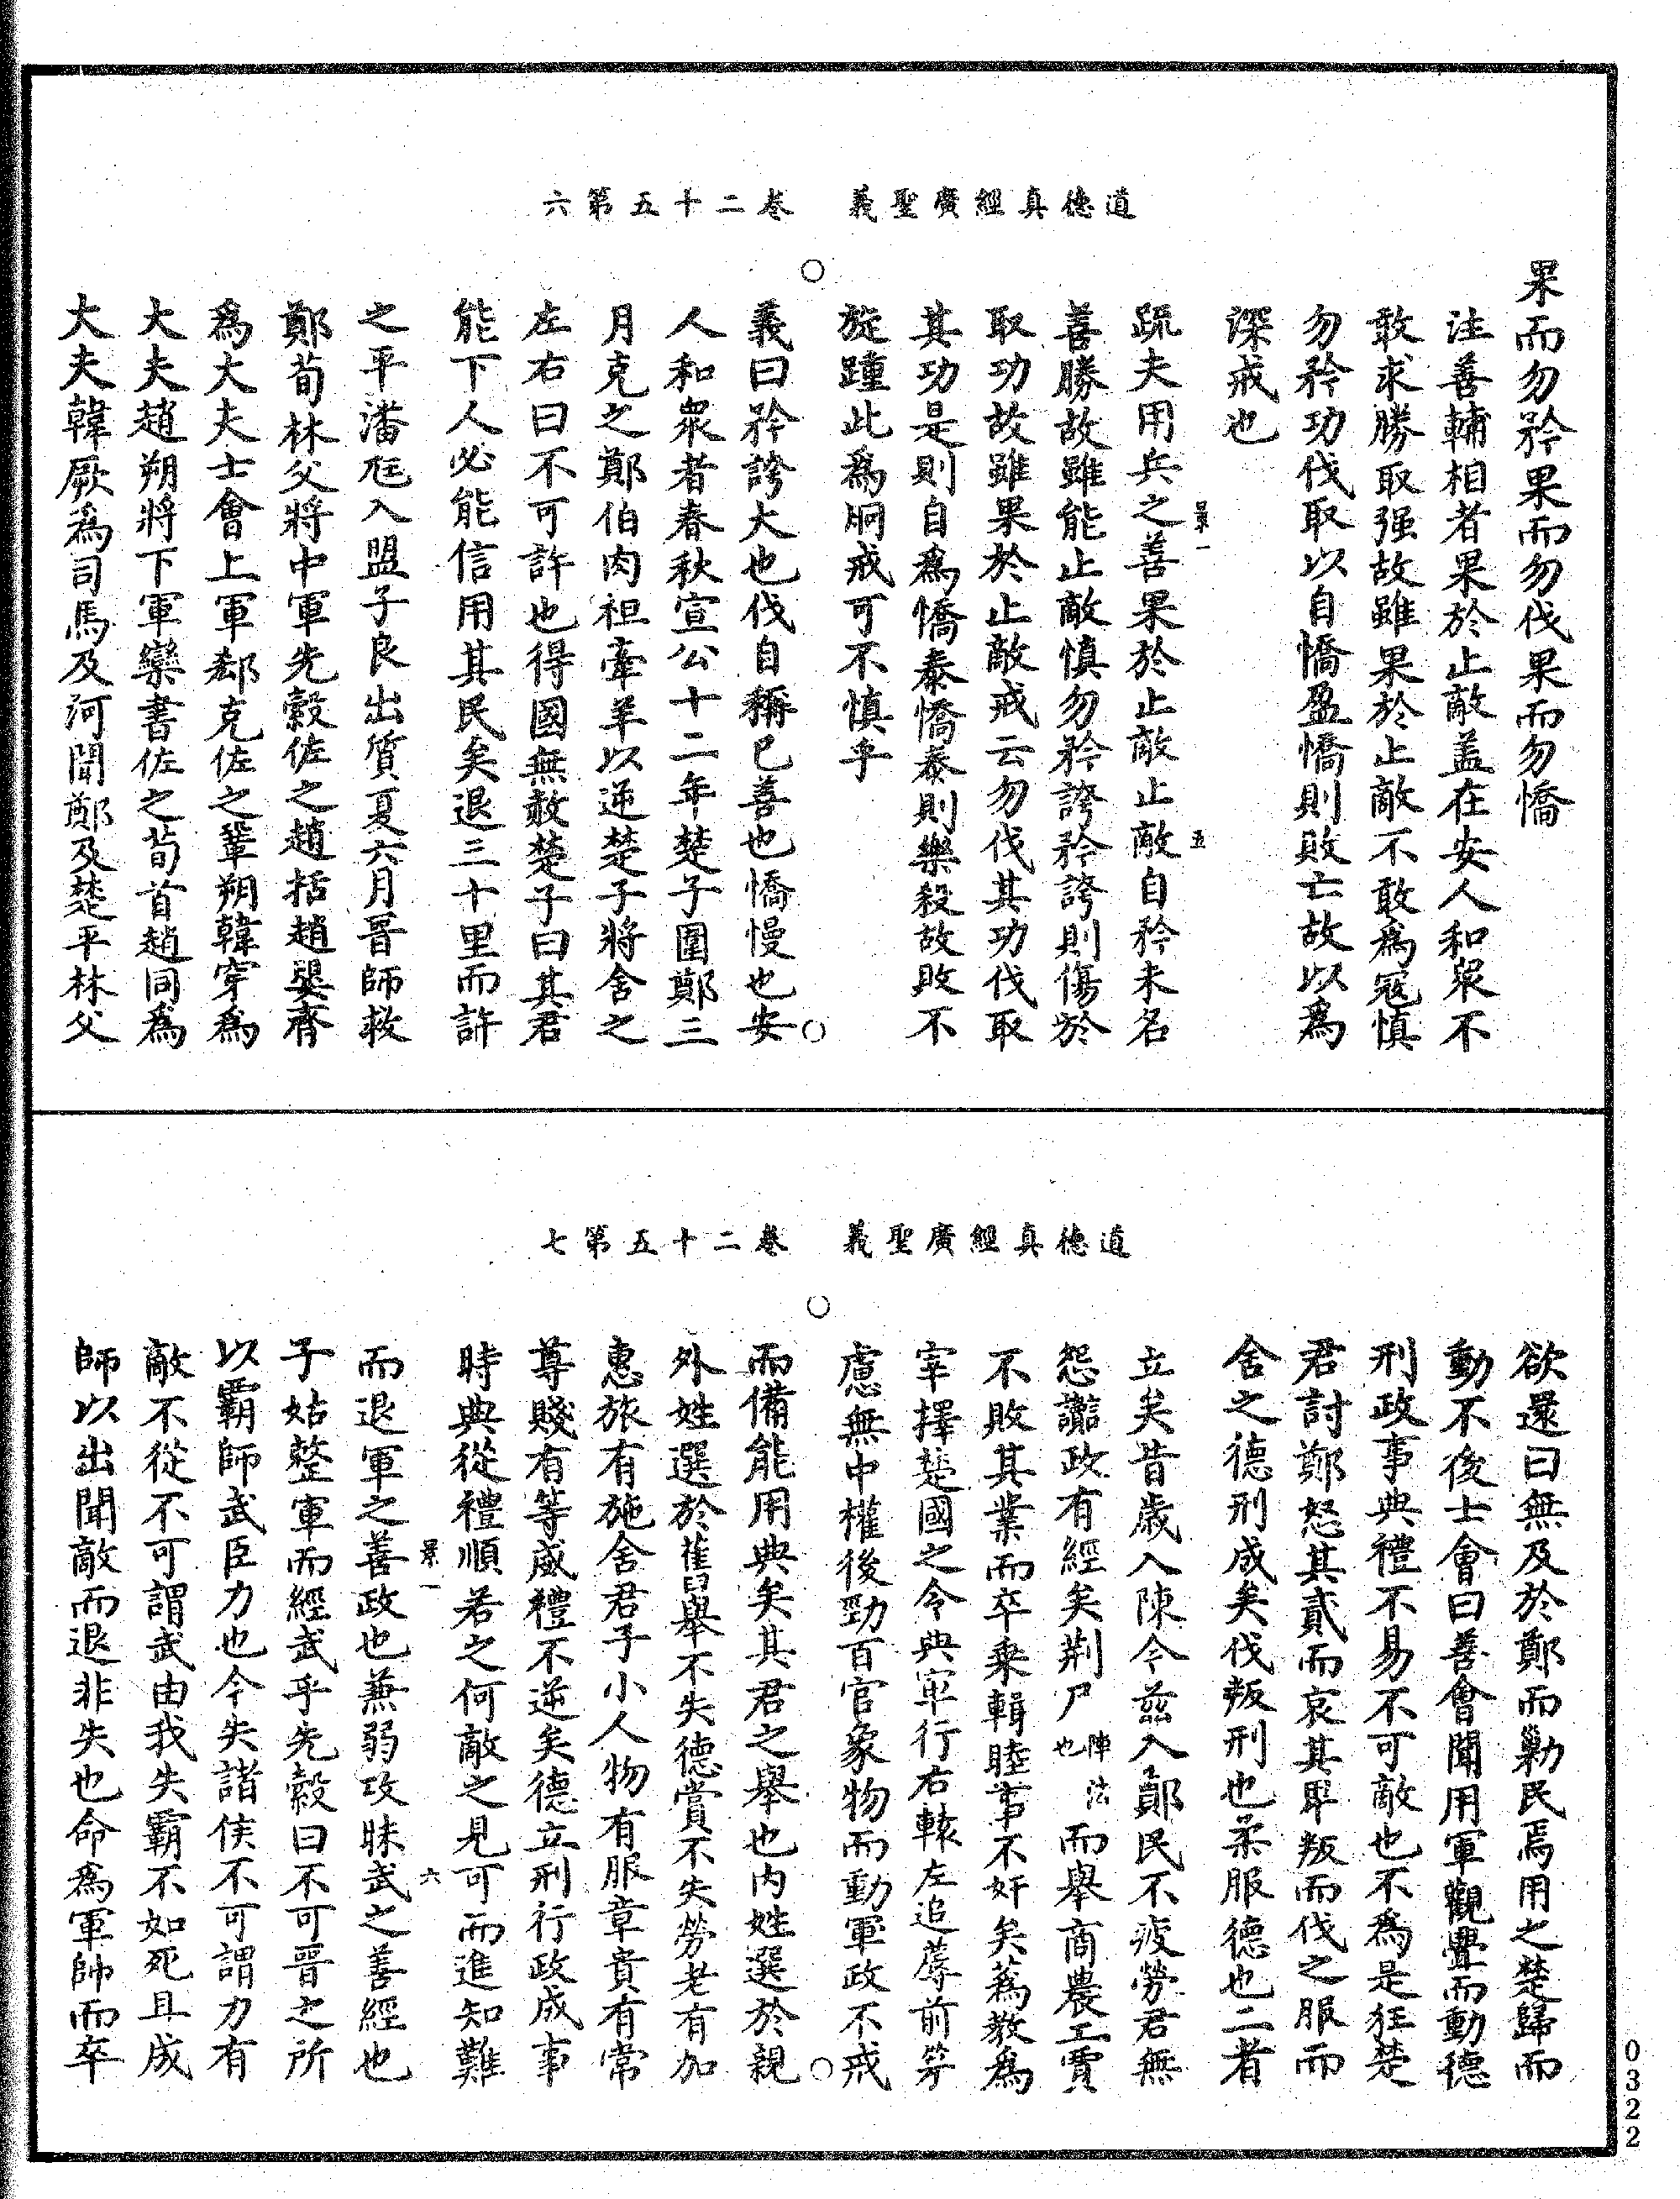 道德真經廣聖義　卷二十五第六
果而勿矜果而勿伐果而勿憍
注善輔相者果於止敵盖在安人和衆不
敢求勝取强故雖果於止敵不敢為寇慎
勿矜功伐取以自憍盈憍則敗亡故以為
深戒也
景一　五
疏夫用兵之善果於止敵止敵自矜未名
善勝故雖能止敵慎勿矜誇矜誇則傷於
取功故雖果於止敵戒云勿伐其功伐取
其功是則自為憍泰憍泰則樂殺故敗不
旋踵此為炯戒可不慎乎
義曰矜誇大也伐自稱已善也憍慢也安
人和衆者春秋宣公十二年楚子圍鄭三
月克之鄭伯肉袒牽羊以逆楚子將舍之
左右曰不可許也得國無赦楚子曰其君
能下人必能信用其民矣退三十里而許
之平潘尫入盟子良出質夏六月晉師救
鄭荀林父將中軍先縠佐之趙括趙嬰齊
為大夫士會上軍郄克佐之鞏朔韓穿為
大夫趙朔將下軍欒書佐之荀首趙同為
大夫韓厥為司馬及河聞鄭及楚平林父
道德真經廣聖義　卷二十五第七
欲還曰無及於鄭而勦民焉用之楚歸而
動不後士會曰善會聞用軍觀釁而動德
刑政事典禮不易不可敵也不為是征楚
君討鄭怒其貳而哀其卑叛而伐之服而
舍之德刑成矣伐叛刑也柔服德也二者
立矣昔歲入陳今兹入鄭民不疲勞君無
怨讟政有經矣荆尸陣法也而舉商農工賈
不敗其業而卒乗輯睦事不奸矣蒍敖為
宰擇楚國之令典軍行右轅左追蓐前茅
慮無中權後勁百官象物而動軍政不戒
而備能用典矣其君之舉也内姓選於親
外姓選於舊舉不失德賞不失勞老有加
惠旅有施舍君子小人物有服章貴有常
尊賤有等威禮不逆矣德立刑行政成事
時典從禮順若之何敵之見可而進知難
景一　六
而退軍之善政也兼弱攻昧武之善經也
子姑整軍而經武乎先縠曰不可晉之所
以霸師武臣力也今失諸侯不可謂力有
敵不從不可謂武由我失霸不如死且成
師以出聞敵而退非失也命為軍帥而卒
0322